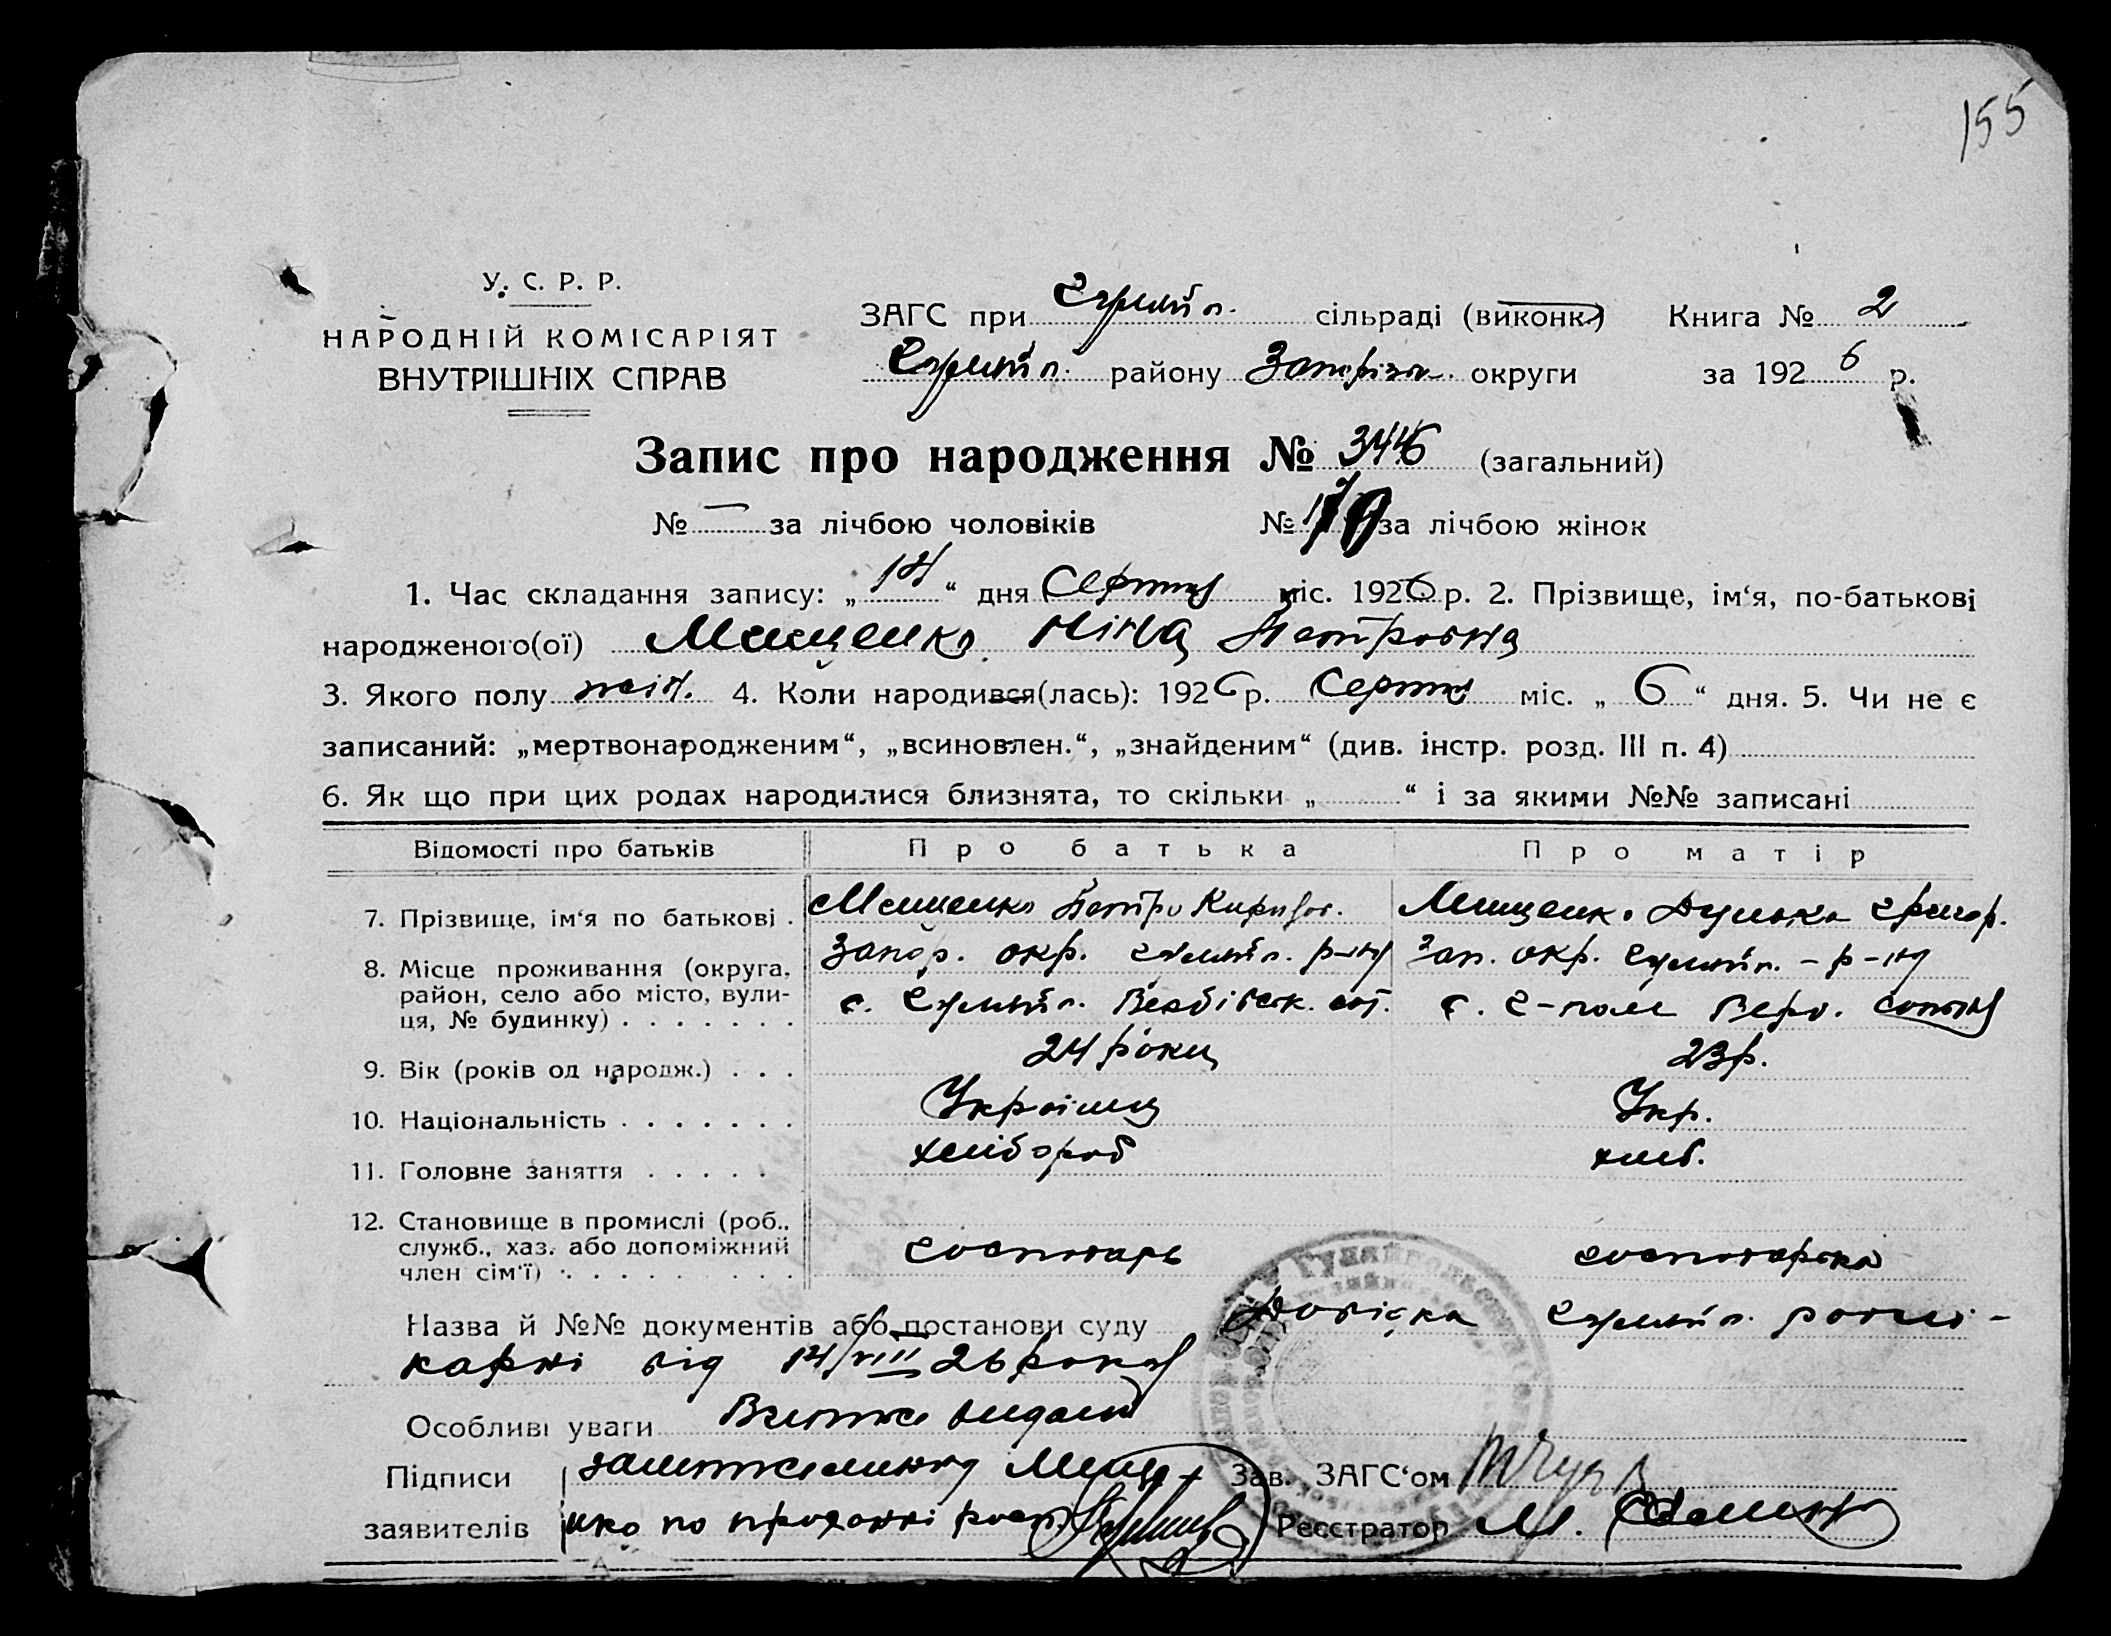 155
У. С. Р. Р.
НАРОДНІЙ КОМІСАРІЯТ
ВНУТРІШНІХ СПРАВ
ЗАГС при Гуляйп. сільраді (виконк.) Книга № 2
Гуляйп. району Запоріж. округи за 1926 р.
Запис про народження № 346 (загальний)
№ — за лічбою чоловіків № за лічбою жінок
1. Час складання запису: „14“ дня Серпня міс. 1926 р. 2. Прізвище, ім‘я, по-батькові
народженого(ої) Мищенко Ніна Петровна
3. Якого полу жін. 4. Коли народився(лась): 1926 р. Серпня міс. „6“ дня. 5. Чи не є
записаний: „мертвонародженим“, „всиновлен.“, „знайденим“ (див. інстр. розд. III п. 4)
6. Як що при цих родах народилися близнята, то скільки „ “ і за якими №№ записані
Відомості про батьків Про батька Про матір
7. Прізвище, ім‘я по батькові . Мищенко Петро Кирилов. Мищенко Григор.
8. Місце проживання (округа, Запор. окр. Гуляйп. р-ну Зап. окр. Гуляйп. – р-ну
район, село або місто, вули-
ця, № будинку) . . . . . . . с. Гуляйп. Вербівськ. сот. с. Г-поле Верб. сотня
9. Вік (років од народж.) . . . 24 роки 23 р.
10. Національність . . . . . . . Українц Укр.
11. Головне заняття . . . . . хлібороб хліб.
12. Становище в промислі (роб.,
служб., хаз. або допоміжний господарь господарька
член сім‘ї) . . . . . . . . . .
Назва й №№ документів або постанови суду Довідка Гуляйп. розлі-
карні від 14/VIII 26 року
Особливі уваги Витяг видан
Підписи Мище- Зав. ЗАГС‘ом
заявителів нко по проханні Реєстратор М.